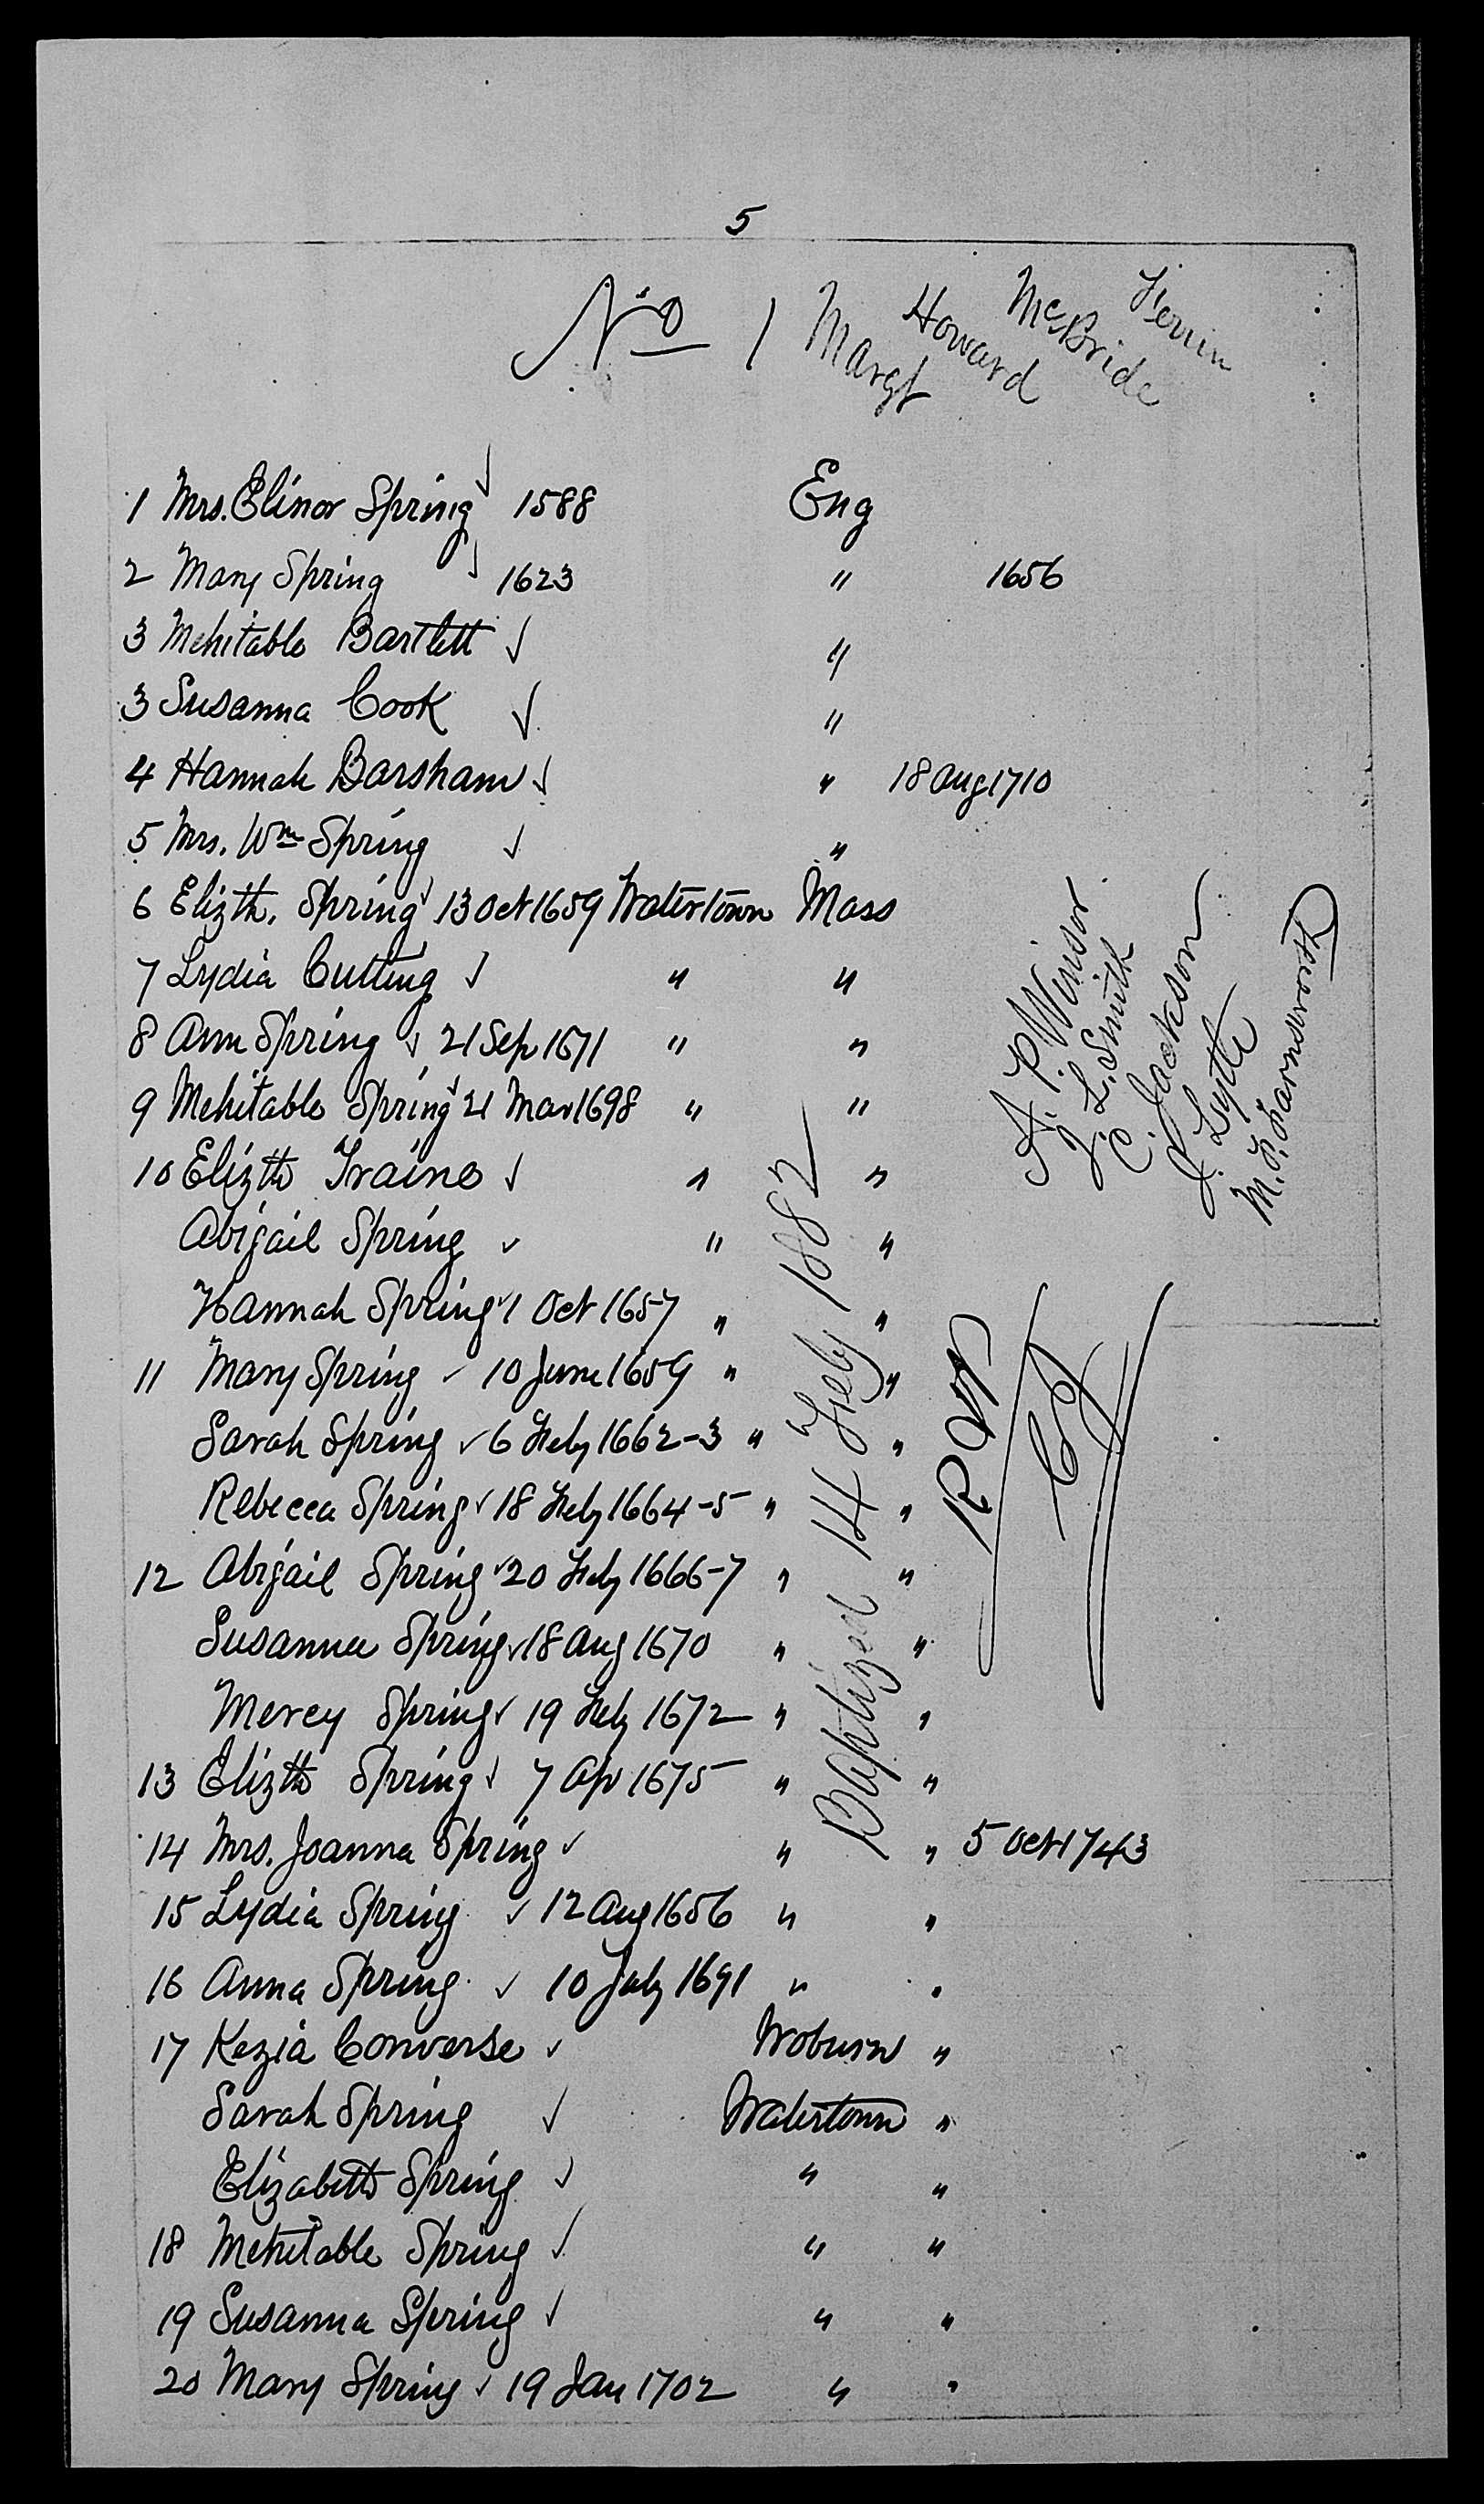 5
No 1 Margt Howard McBride
1 Mrs. Elinor Spring √ 1588 Eng
2 Mary Spring √ 1623 " 1656
3 Mehitable Bartlett √ "
3 Susanna Cook √ "
4 Hannah Barsham √ " 18 Aug 1710
5 Mrs. Wm Spring √ "
6 Elizth. Spring √ 13 Oct 1659 Watertown Mass
7 Lydia Cutting √ " "
8 Ann Spring √ 21 Sep 1671 " "
9 Mehitable Spring √ 21 Mar 1698 " "
10 Elizth Traine √ " "
Abigail Spring √ " "
Hannah Spring √ 1 Oct 1657 " "
11 Mary Spring √ 10 June 1659 " "
Sarah Spring √ 6 Feby 1662-3 " "
Rebecca Spring √ 18 Feby 1664-5 " "
12 Abigail Spring √ 20 Feby 1666-7 " "
Susanna Spring √ 18 Aug 1670 " "
Mercy Spring √ 19 Feby 1672 " "
13 Elizth Spring √ 7 Apr 1675 " "
14 Mrs. Joanna Spring √ " " 5 Oct 1743
15 Lydia Spring √ 12 Aug 1656 " "
16 Anna Spring √ 10 July 1691 " "
17 Kezia Converse √ Woburn "
Sarah Spring √ Watertown "
Elizabeth Spring √ " "
18 Mehitable Spring √ " "
19 Susanna Spring √ " "
20 Mary Spring √ 19 Jan 1702 " "
Baptized 14 Feby 1882
A. P. Winsor
J. L. Smith
C. Jackson
J. Lytle
M. F. Farnsworth